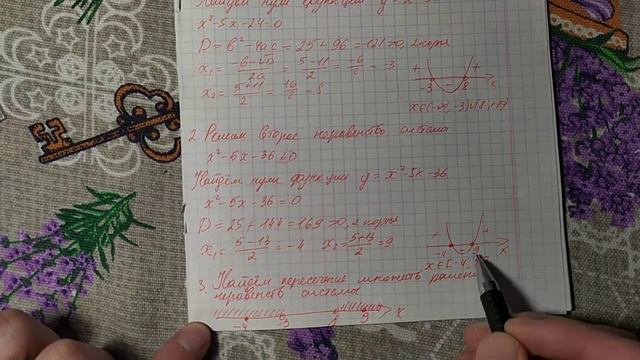 Найдём нули функции y =
x²-5x-24=0
D = b²-4ac = 25+96 = 121>0, 2 корня
x₁ = (-b-√D)/2a = (5-11)/2 = -6/2 = -3
x₂ = (5+11)/2 = 16/2 = 8
+ - + -3 8 x
2. Решим второе неравенство системы
x²-5x-36≤0
Найдём нули функции y = x²-5x-36
x²-5x-36=0
D = 25+144 = 169>0, 2 корня
x₁ = (5-13)/2 = -4 x₂ = (5+13)/2 = 9
+ - + -4 9 x
x∈[-4;
3. Найдём пересечение множеств решений
неравенств системы
-4 -3 8 9 x